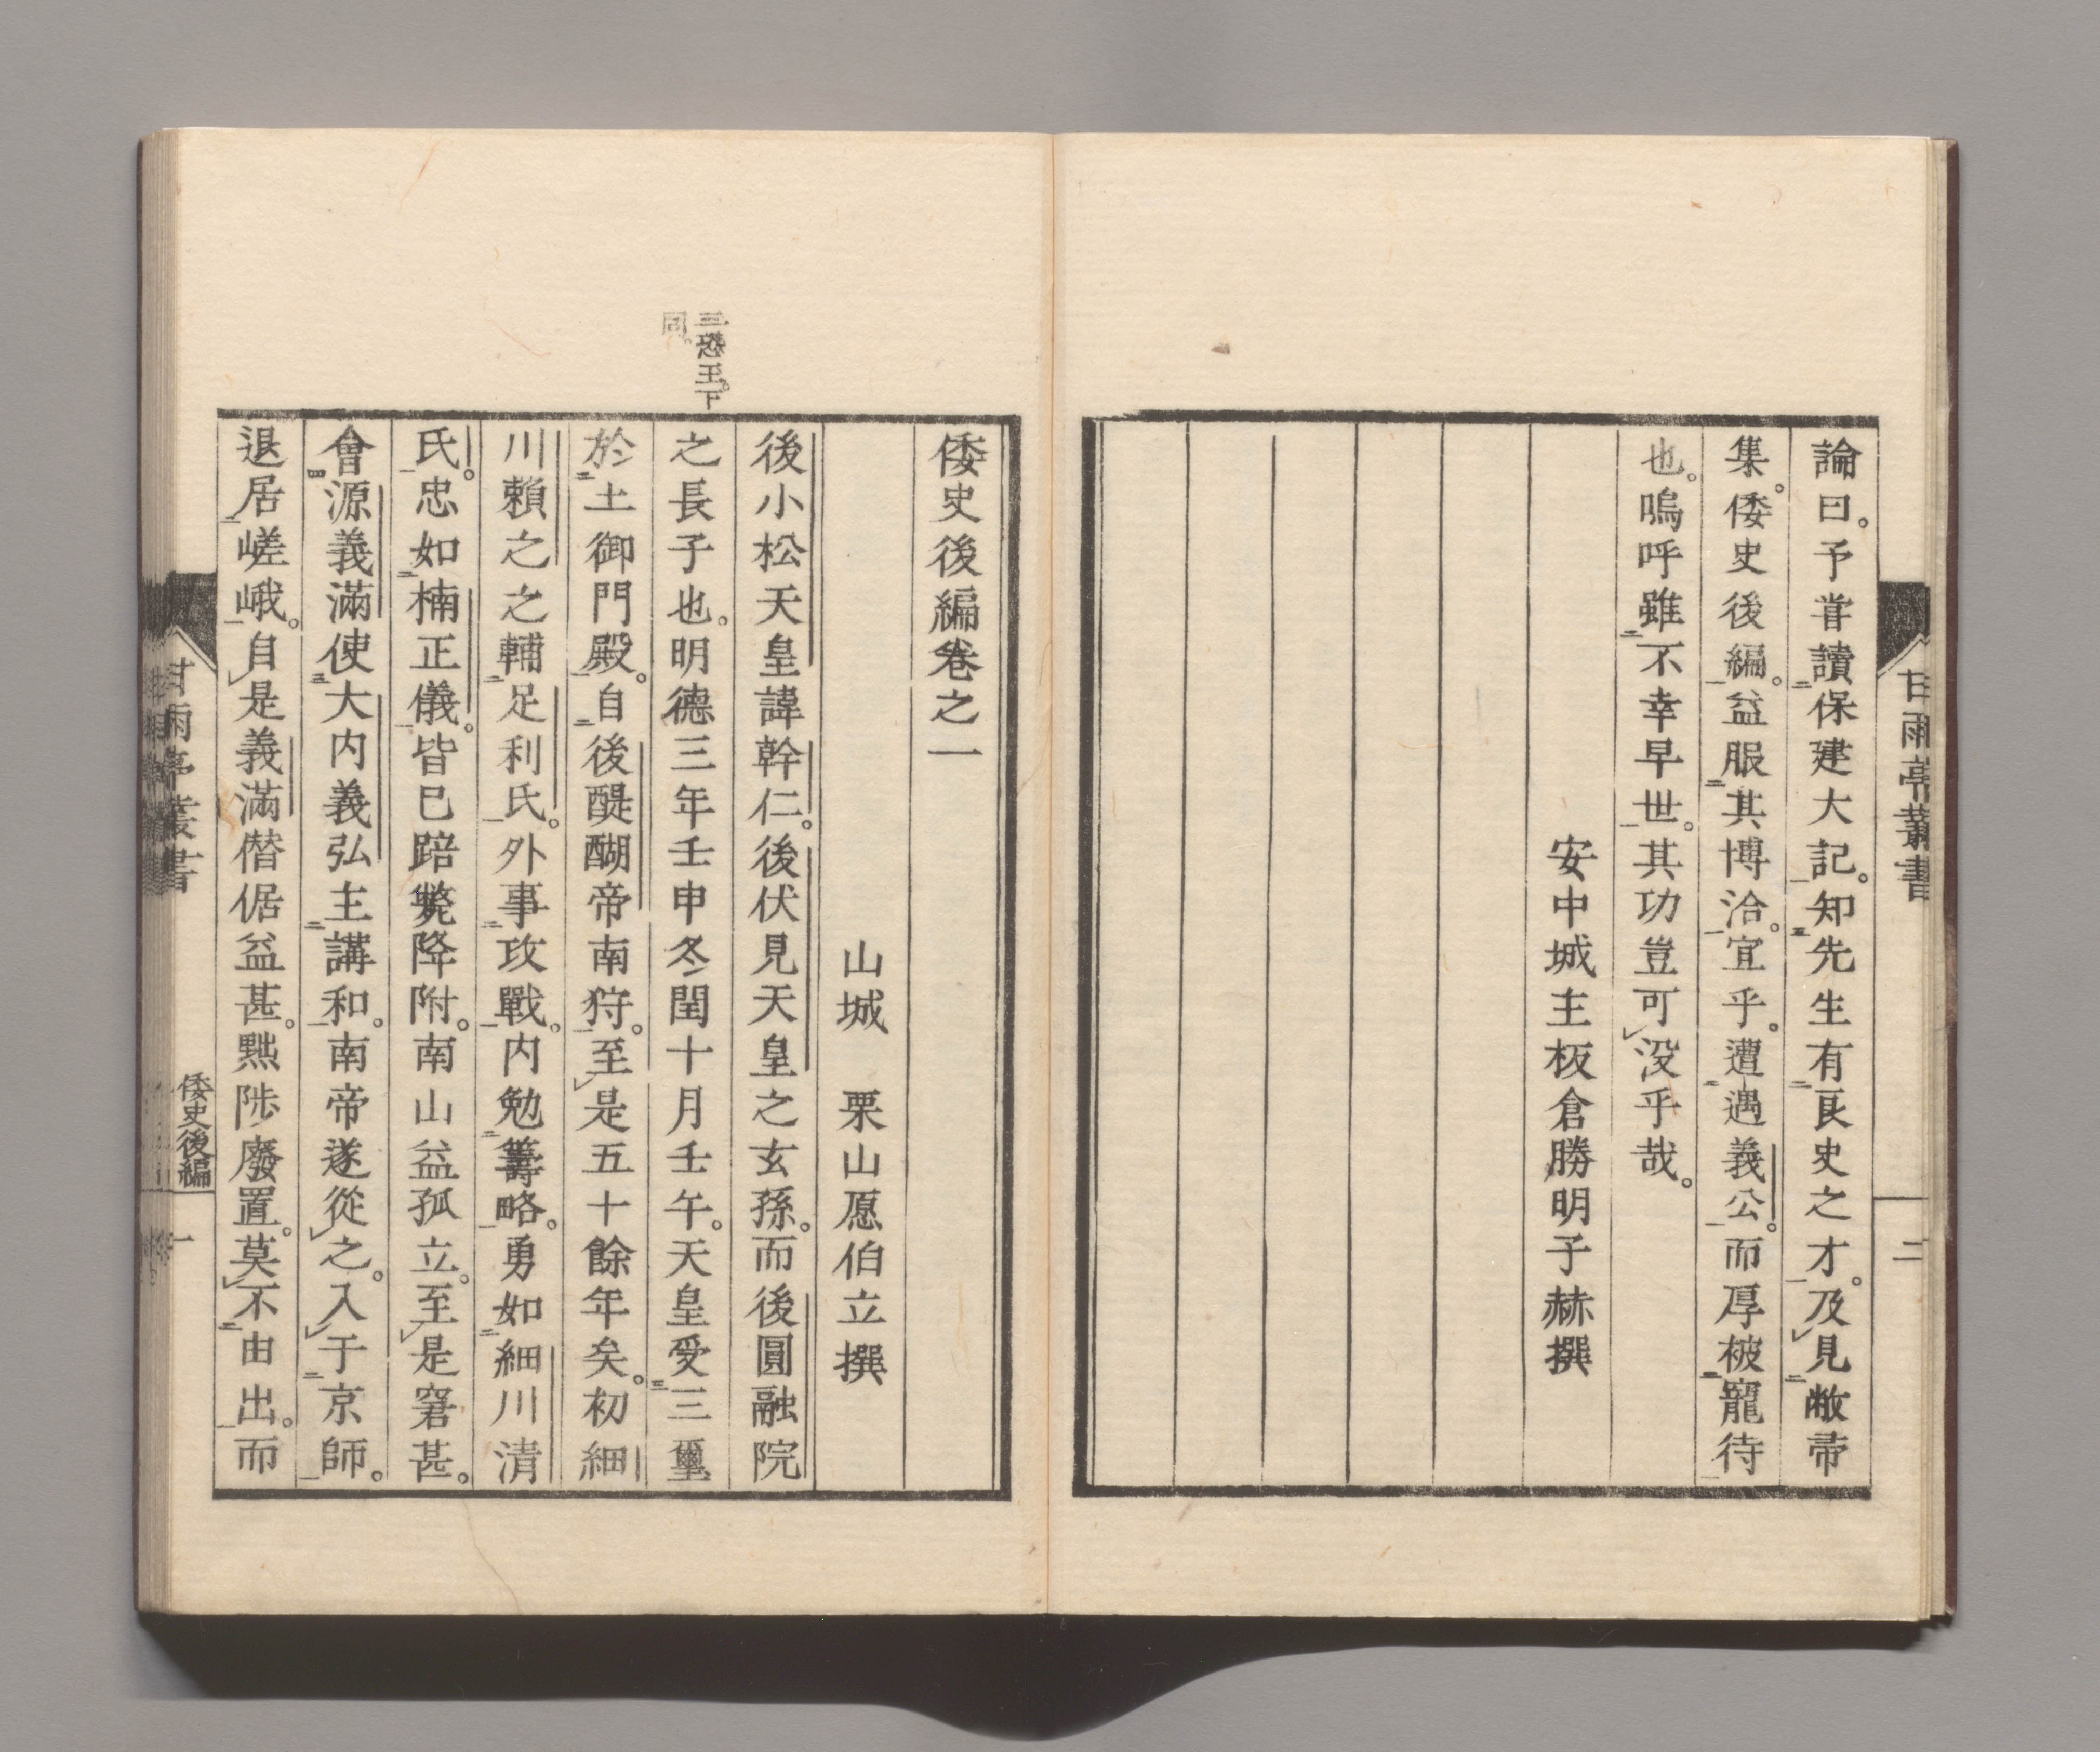 論曰。予嘗讀保建大記。知先生有良史之才。及見敝帚
集。倭史後編。益服其博洽。宜乎。遭遇義公。而厚被寵待
也。嗚呼雖不幸早世。其功豈可没乎哉。
安中城主板倉勝明子赫撰
甘雨亭叢書
二
倭史後編卷之一
山城 栗山愿伯立撰
後小松天皇諱幹仁。後伏見天皇之玄孫。而後圓融院
之長子也。明德三年壬申冬閏十月壬午。天皇受三璽
於土御門殿。自後醍醐帝南狩。至是五十餘年矣。初細
川賴之之輔足利氏。外事攻戰。内勉籌略。勇如細川清
氏。忠如楠正儀。皆已踣斃降附。南山益孤立。至是窘甚。
會源義滿使大内義弘主講和。南帝遂從之。入于京師。
退居嵯峨。自是義滿僭倨益甚。黜陟廢置。莫不由出。而
三恐王。下
同。
甘雨亭叢書
倭史後編
一